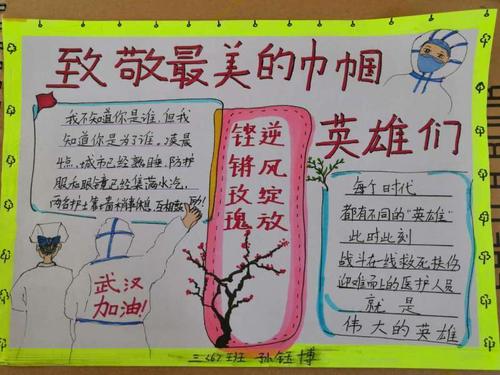 致敬最美的巾帼
英雄们
我不知道你是谁,但我
知道你是为了谁,凌晨
4点,城市已经熟睡,防护
服和眼镜已经集满水汽,
两名护士靠墙稍事休息,互相鼓励!
逆风绽放
铿锵玫瑰
每个时代
都有不同的"英雄"
此时此刻
战斗在线救死扶伤
迎难而上的医护人员
就是
伟大的英雄
武汉
加油!
三㈥班 孙钰博